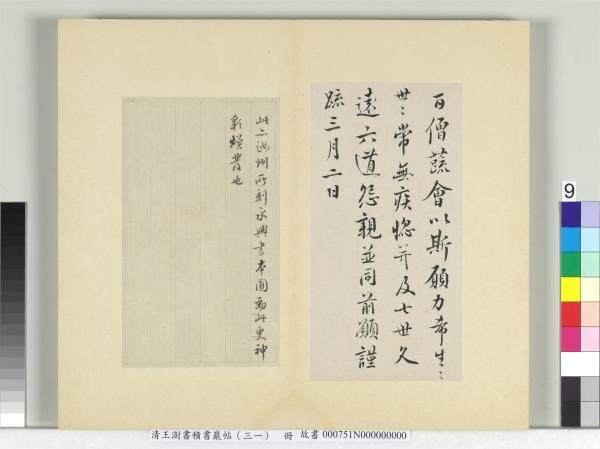 百僧蔬會以斯願力希生〻
世〻常無疾惱并及七世久
遠六道怨親並同前願謹
疏三月二日
此亦汝州所刻永興書本圓勁此更神
彩煥發也
清王澍書積書巖帖（三一） 冊 故書 000751N000000000
9